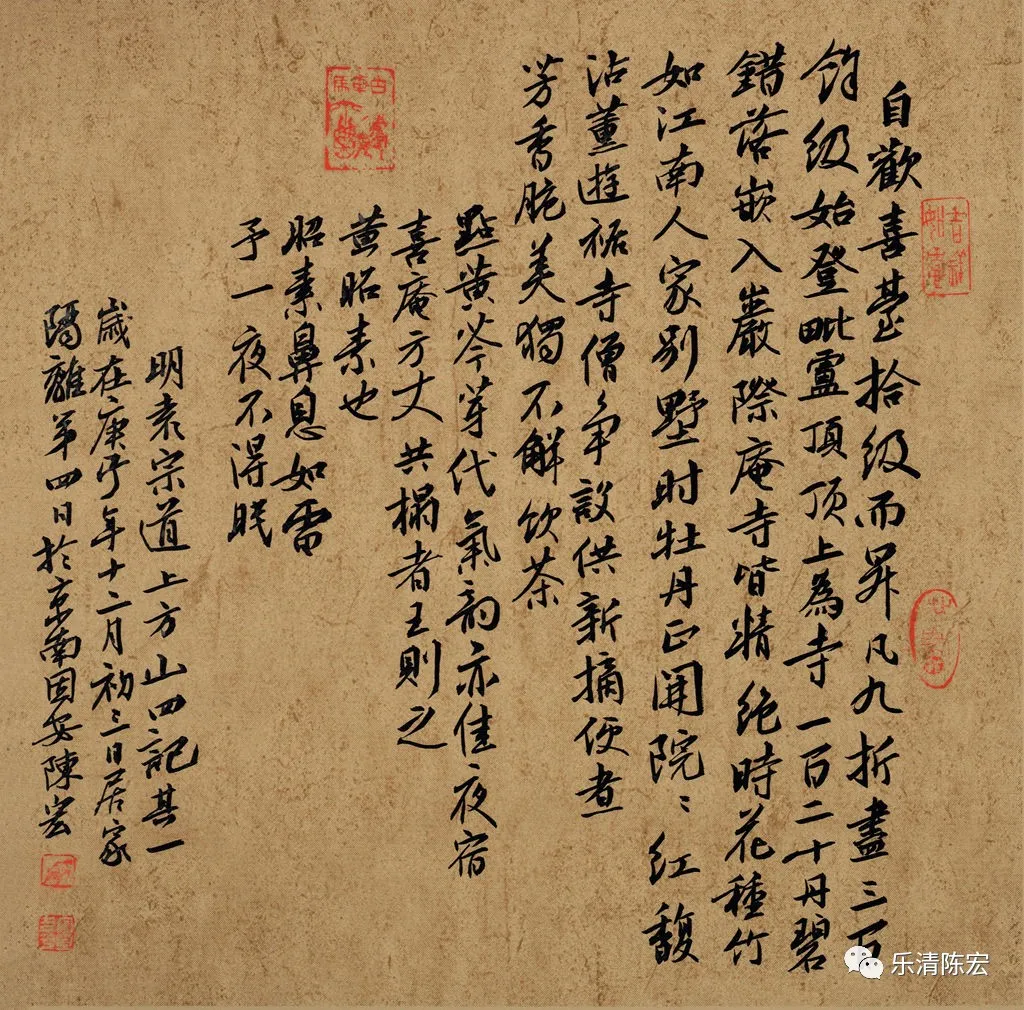 自歡喜臺拾級而昇凡九折盡三百
餘級始登毗盧頂頂上為寺一百二十丹碧
錯落嵌入巖際庵寺皆精絕時花種竹
如江南人家別墅时牡丹正開院〻红馥
沾薰遊裾寺僧争設供新摘便煮
芳香脆美獨不解饮茶
點黄芩芽代氣韵亦佳夜宿
喜庵方丈共榻者王則之
黄昭素也
昭素鼻息如雷
予一夜不得眠
明袁宗道上方山四記其一
歲在庚子年十二月初三日居家
隔離第四日於京南固安陳宏
乐清陈宏